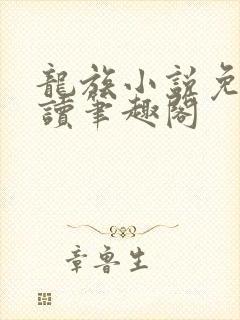 龍族小説免
讀筆趣閣
章魯生